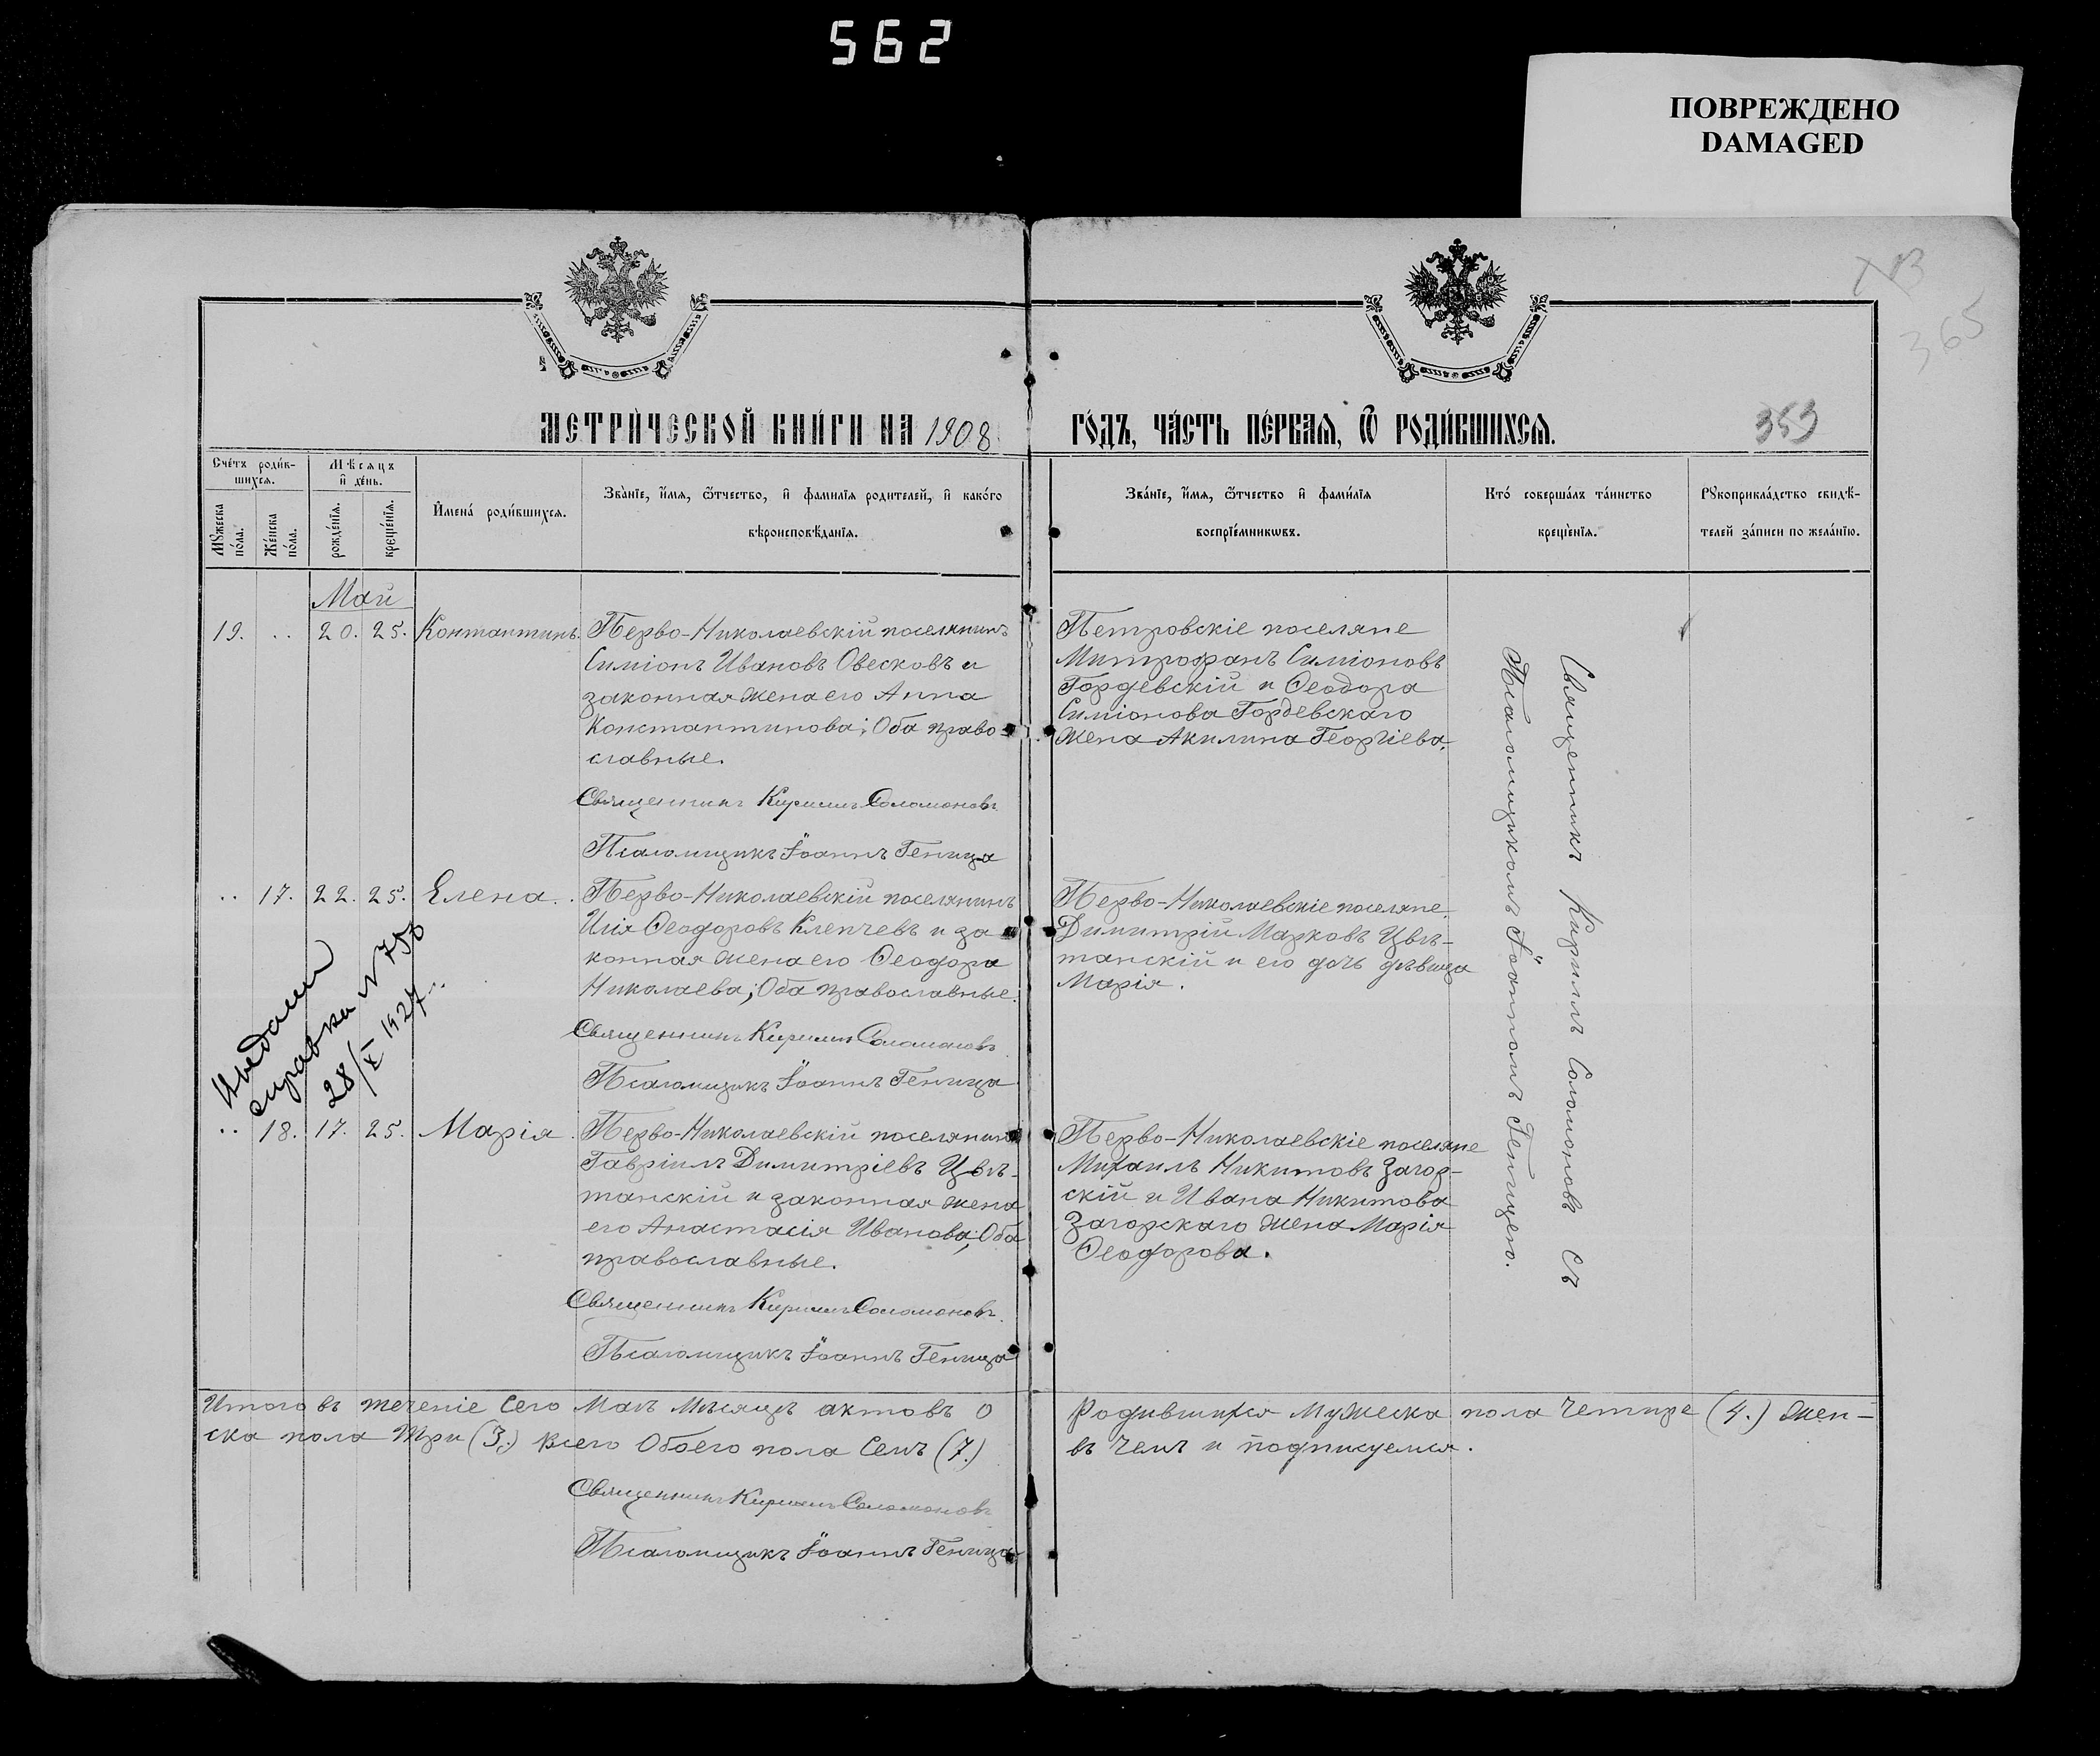 562
ПОВРЕЖДЕНО
DAMAGED
365
МЕТРИЧЕСКОЙ КНИГИ НА 1908
ГОДЪ, ЧАСТЬ ПЕРВАЯ, Ѿ РОДИВШИХСЯ.
353
Счетъ родив-
шихся.
Мѣсяцъ
и день.
Мужеска
пола.
Женска
пола.
рожденїя.
крещенїя.
Имена родившихся.
Званїе, имя, ѿтчество, и фамилїя родителей, и какого
вѣроисповѣданїя.
Званїе, имя, ѿтчество и фамилїя
воспрїемниковъ.
Кто совершалъ таинство
крещенїя.
Рукоприкладство свидѣ-
телей записи по желанїю.
Май
19. .. 20. 25. Контантинъ.
Перво-Николаевскій поселянинъ
Симіонъ Ивановъ Овесковъ и
законная жена его Анна
Константинова; Оба право-
славные.
Священникъ Кириллъ Соломоновъ
Псаломщикъ Іоаннъ Геница
Петровскіе поселяне
Митрофанъ Симіоновъ
Гордевскій и Ѳеодора
Симіонова Гордевскаго
жена Акилина Георгіева.
.. 17. 22. 25. Елена.
Перво-Николаевскій поселянинъ
Илія Ѳеодоровъ Клепчевъ и за
конная жена его Ѳеодора
Николаева; Оба православные.
Священникъ Кириллъ Соломоновъ
Псаломщикъ Іоаннъ Геница
Перво-Николаевскіе поселяне
Димитрій Марковъ Цвѣ-
танскій и его дочь дѣвица
Марія.
справка N 758
28/X 1927
.. 18. 17. 25. Марія.
Перво-Николаевскій поселянинъ
Гавріилъ Димитріевъ Цвѣ-
танскій и законная жена
его Анастасія Иванова; Оба
православные.
Священникъ Кириллъ Соломоновъ
Псаломщикъ Іоаннъ Геница
Перво-Николаевскіе поселяне
Михаилъ Никитовъ Загор-
скій и Ивана Никитова
Загорскаго жена Марія
Ѳеодорова.
Священникъ Кириллъ Соломоновъ съ
Псаломщикомъ Іоанномъ Геницею.
Итого въ теченіе сего Маѣ Мѣсяцъ актовъ о Родившихся Мужеска пола Четире (4.) Жен-
ска пола Три (3.) Всего Обоего пола Семъ (7.) въ чемъ и подписуемся.
Священникъ Кириллъ Соломоновъ
Псаломщикъ Іоаннъ Геница